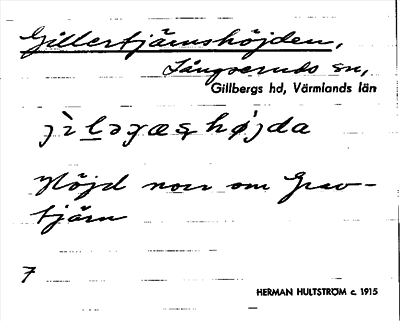 Gillertjärnshöjden,
Långseruds sn,
Gillbergs hd, Värmlands län
Höjd norr om Grav-
tjärn
7
HERMAN HULTSTRÖM c. 1915